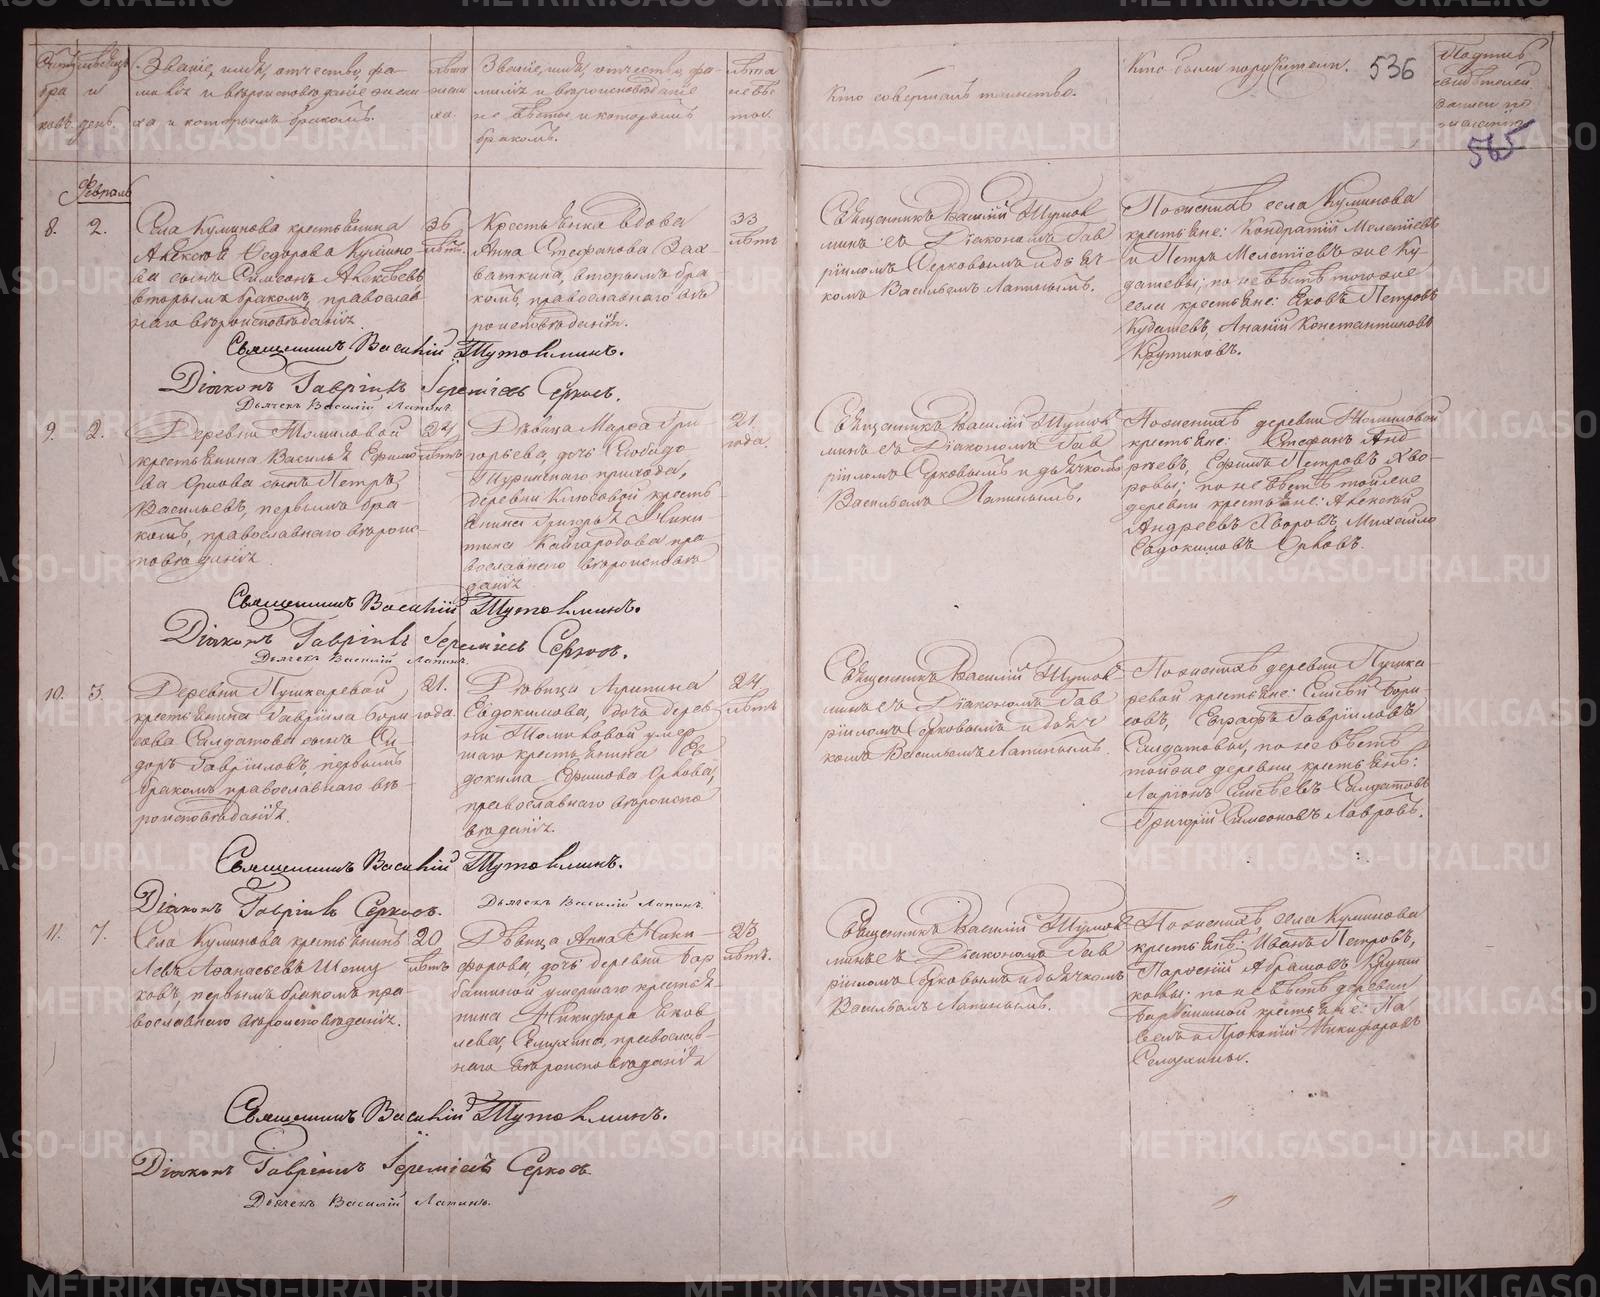 Званіе, имя, отчество, фа-
милія и вѣроисповѣданіе жени-
ха и которымъ бракомъ.
лѣта
жени
ха.
Званіе, имя, отчество, фа-
милія и вѣроисповѣданіе
невѣсты и которымъ
бракомъ.
лѣта
невѣс
ты.
Кто совершалъ таинство.
Кто были поручители.
536
565
Февраль
8.
2.
Села Куликова крестьянина
Алексѣя Ѳедорова
сынъ Симеонъ Алексѣевъ
вторымъ бракомъ, православ
наго вѣроисповѣданія.
36
лѣтъ.
Крестьянка вдова
Анна Стефанова Зах
ваткина, вторымъ бра
комъ, православнаго вѣ
роисповѣданія.
33
лѣтъ
Священникъ Василій Тутол
минъ съ Діакономъ Гав
рииломъ Серковымъ и дьяч-
комъ Васильемъ Лапинымъ.
По женихѣ села Куликова
крестьяне: Кондратій Мелетіевъ
и Петръ Мелетіевъ же Ку
дашевы; по невѣстѣ того же
села крестьяне: Яковъ Петровъ
Кудашевъ, Ананій Константиновъ
Крутиковъ.
Священникъ Василій Тутолминъ.
Діаконъ Гавріилъ Іереміевъ Серковъ.
Дьячекъ Василій Лапинъ.
9.
2.
Деревни Томиловой
крестьянина Василья Ефимо
ва Орлова сынъ Петръ
Васильевъ, первымъ бра-
комъ, православнаго вѣроис-
повѣданія.
24
лѣтъ
Дѣвица Марѳа Гри
горьева, дочь Слободо
Туринскаго прихода,
деревни Ключевой кресть
янина Григорья Ники
тина Кайгородова пра
вославнаго вѣроисповѣ
данія
21.
года.
Священникъ Василій Тутол
минъ съ Діакономъ Гав
рииломъ Серковымъ и дьячкомъ
Васильемъ Лапинымъ.
По женихѣ деревни Томиловой
крестьяне: Стефанъ Анд
реевъ, Ефимъ Петровъ Хво-
ровы; по невѣстѣ той же
деревни крестьяне: Алексѣй
Андреевъ Хворовъ, Михайло
Евдокимовъ Орловъ.
Священникъ Василій Тутолминъ.
Діаконъ Гавріилъ Іереміевъ Серковъ.
Дьячекъ Василій Лапинъ.
10.
3.
Деревни Пушкаревой
крестьянина Гавріила Бори
сова Салдатова сынъ Си-
доръ Гавріиловъ, первымъ
бракомъ православнаго вѣ-
роисповѣданія.
21.
года.
Дѣвица Агрипина
Евдокимова, дочь дерев
ни Томиловой умер
шаго крестьянина Ев
докима Ефимова Орлова,
православнаго вѣроиспо
вѣданія.
24
лѣтъ
Священникъ Василій Тутол
минъ съ Діакономъ Гав
рииломъ Серковымъ и дьяч
комъ Васильемъ Лапинымъ.
По женихѣ деревни Пушка
ревой крестьяне: Елисѣй Бори
совъ, Евграфъ Гавріиловъ
Салдатовы, по невѣстѣ
той же деревни крестьяне:
Ларіонъ Елисѣевъ Салдатовъ
Григорій Симеоновъ Лавровъ.
Священникъ Василій Тутолминъ.
Діаконъ Гавріилъ Серковъ.
Дьячекъ Василій Лапинъ.
11.
7.
Села Куликова крестьянинъ
Левъ Аѳанасьевъ
первымъ бракомъ пра-
вославнаго вѣроисповѣданія.
20
лѣтъ
Дѣвица Анна Ники
форова, дочь деревни Бар
башиной умершаго крестья
нина Никифора Яков
лева, Селухина, православ-
наго вѣроисповѣданія
23
лѣтъ.
Священникъ Василій Тутол
минъ съ Діакономъ Гав
рииломъ Серковымъ и дьячкомъ
Васильемъ Лапинымъ.
По женихѣ, села Куликова
крестьяне: Иванъ Петровъ,
Парѳеній Абрамовъ Крути
ковы; по невѣстѣ деревни
Барбашиной крестьяне: Па
велъ и Прокопій Никифоровы
Селухины.
Священникъ Василій Тутолминъ.
Діаконъ Гавріилъ Іереміевъ Серковъ.
Дьячекъ Василій Лапинъ.
METRIKI.GASO-URAL.RU